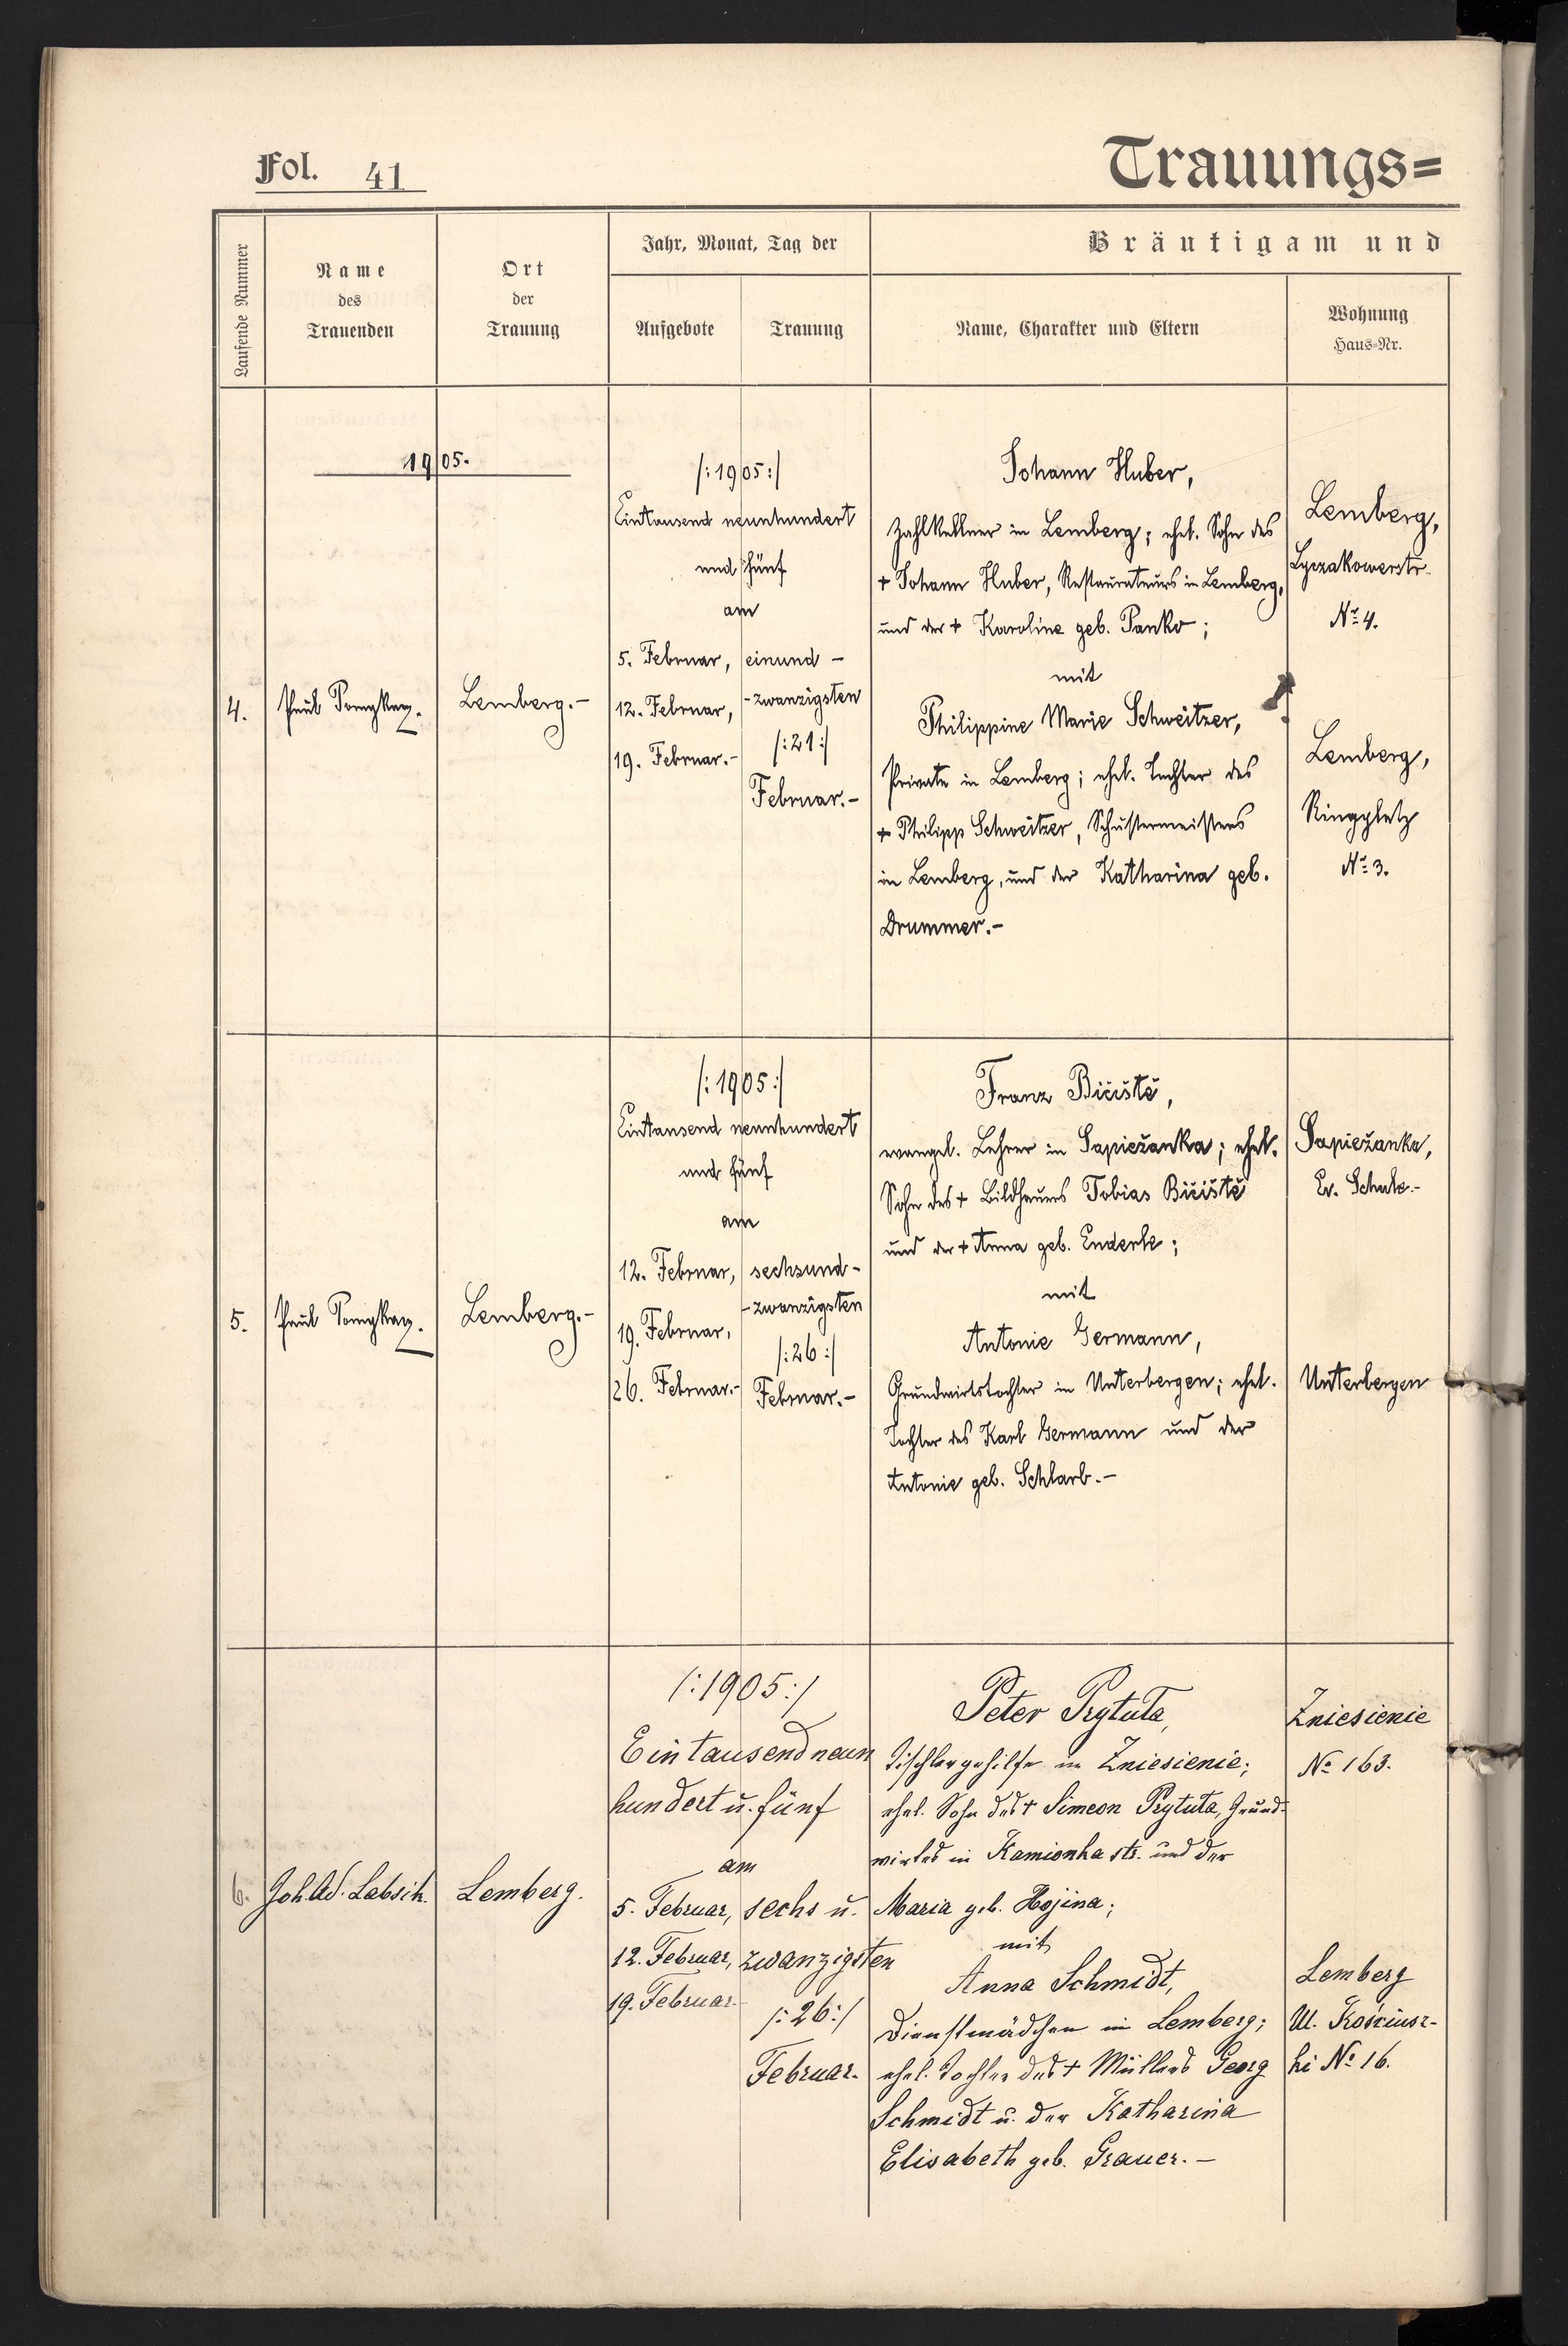 Fol. 41
Trauungs=
Laufende Nummer
Name
des
Trauenden
Ort
der
Trauung
Jahr, Monat, Tag der
Aufgebote
Trauung
Bräutigam und
Name, Charakter und Eltern
Wohnung
Haus=Nr.
1905.
4.
Paul
Lemberg.-
/:1905:/
Eintausend neunhundert
und fünf
am
5. Februar,
12. Februar,
19. Februar.-
einund-
-zwanzigsten
/:21:/
Februar.-
Johann Huber,
Zahlkellner in Lemberg; ehel. Sohn des
+ Johann Huber, Restaurateurs in Lemberg,
und der + Karoline geb. Panko;
mit
Philippine Marie Schweitzer,
Private in Lemberg; ehel. Tochter des
+ Philipp Schweitzer, Schustermeisters
in Lemberg, und der Katharina geb.
Drummer.-
Lemberg,
Lyczakowerstr.
Nr. 4.
Lemberg,
Ringplatz
Nr. 3.
5.
Paul
Lemberg.-
/:1905:/
Eintausend neunhundert
und fünf
am
12. Februar,
19. Februar,
26. Februar.-
sechsund-
-zwanzigsten
/:26:/
Februar.-
Franz Bičiště,
evangel. Lehrer in Sapiežanka; ehel.
Sohn des + Bildhauers Tobias Bičiště
und der + Anna geb. Enderle;
mit
Antonie Germann,
Grundwirtstochter in Unterbergen; ehel.
Tochter des Karl Germann und der
Antonie geb. Schlarb.-
Sapiežanka,
Ev. Schule.-
Unterbergen
6.
Joh. Ad. Labsik.
Lemberg.
/:1905:/
Eintausendneun
hundert u. fünf
am
5. Februar,
12. Februar,
19. Februar.
sechs u.
zwanzigsten
/:26:/
Februar.
Peter Prytuta,
Tischlergehilfe in Zniesienie;
ehel. Sohn des + Simeon Prytuta, Grund-
wirtes in Kamionka str. und der
Maria geb. Hojina;
mit
Anna Schmidt,
Dienstmädchen in Lemberg;
ehel. Tochter des + Müllers Georg
Schmidt u. der Katharina
Elisabeth geb. Grauer.-
Zniesienie
No 163.
Lemberg
Ul. Kościusz-
ki No 16.